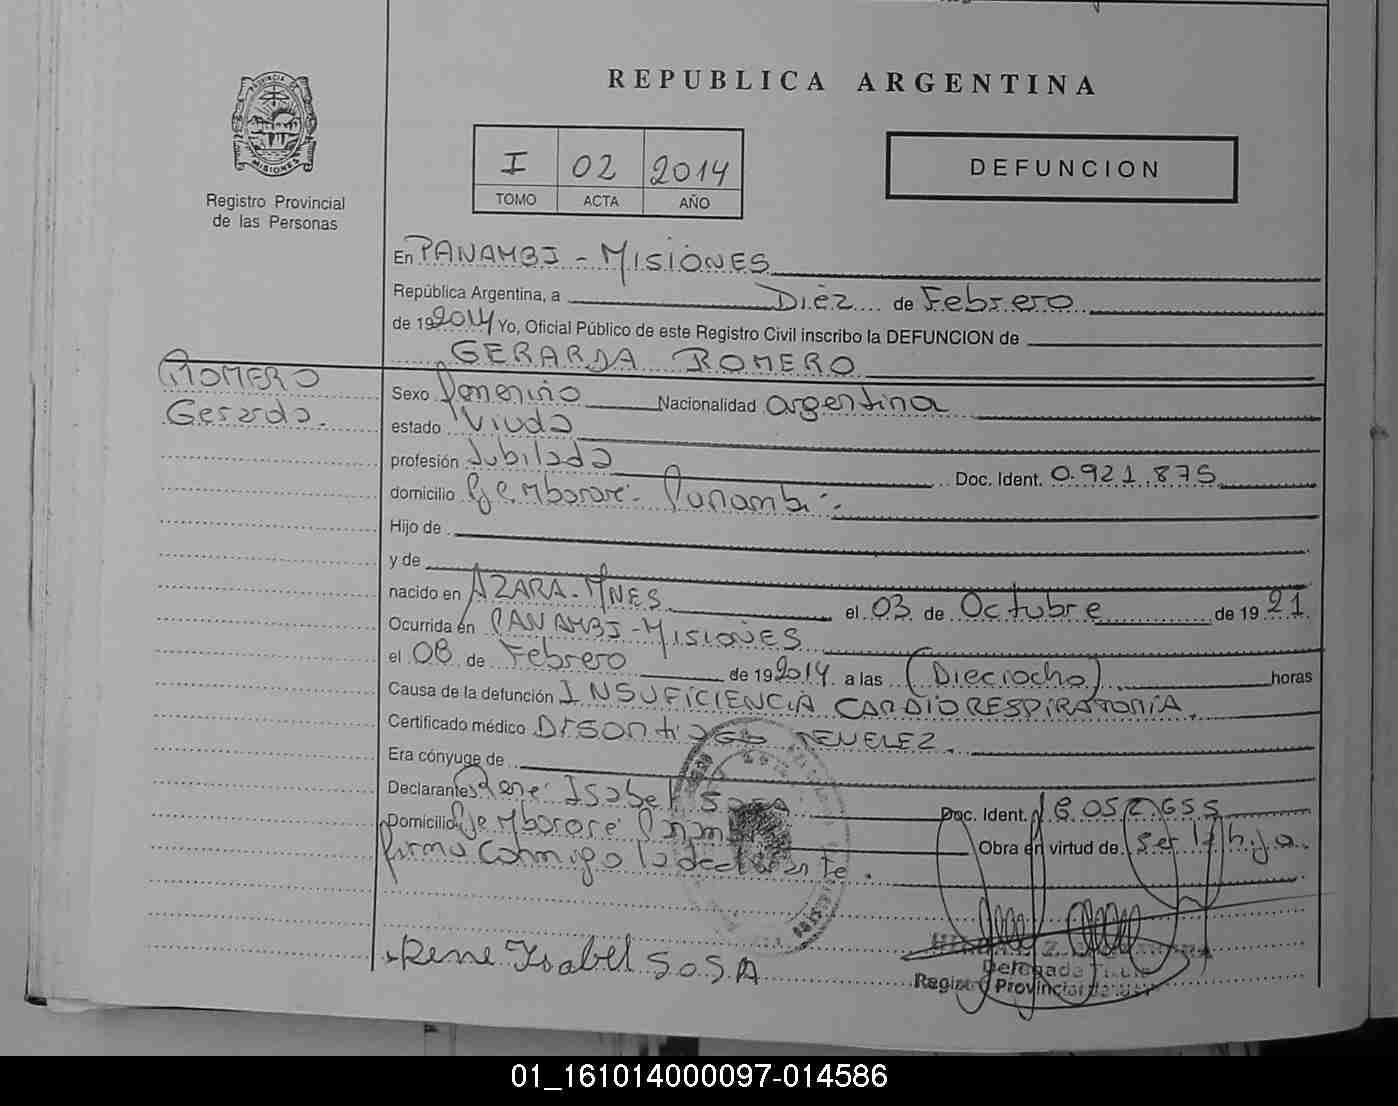 REPUBLICA ARGENTINA
MISIONES
Registro Provincial
de las Personas
I 02 2014
TOMO ACTA AÑO
DEFUNCION
En PANAMBI - MISIONES
República Argentina, a Diez de Febrero
de 19 2014 Yo, Oficial Público de este Registro Civil inscribo la DEFUNCION de
GERARDA ROMERO
ROMERO
Gerarda.
Sexo femenino Nacionalidad argentina
estado Viuda
profesión Jubilada Doc. Ident. 0.921.875
domicilio Panambi
Hijo de
y de
nacido en AZARA-MNES el 03 de Octubre de 19 21
Ocurrida en PANAMBI-MISIONES
el 08 de Febrero de 19 2014 a las (Dieciocho) horas
Causa de la defunción INSUFICIENCIA CARDIORESPIRATORIA.
Certificado médico
Era cónyuge de
Declarante Rene Isabel Sosa Doc. Ident. 16.052.655
Domicilio Obra en virtud de ser la hija.
firma conmigo la declarante.
Rene Isabel SOSA
Delegada
Registro Provincial de
01_161014000097-014586